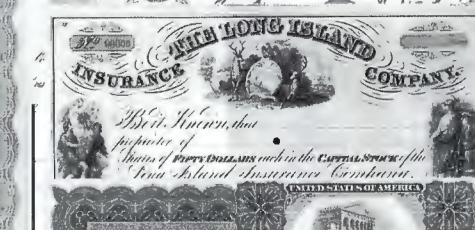 No. 00000
THE LONG ISLAND
INSURANCE COMPANY.
Be it Known, that
proprietor of
Shares of FIFTY DOLLARS each in the CAPITAL STOCK of the
Long Island Insurance Company.
UNITED STATES OF AMERICA